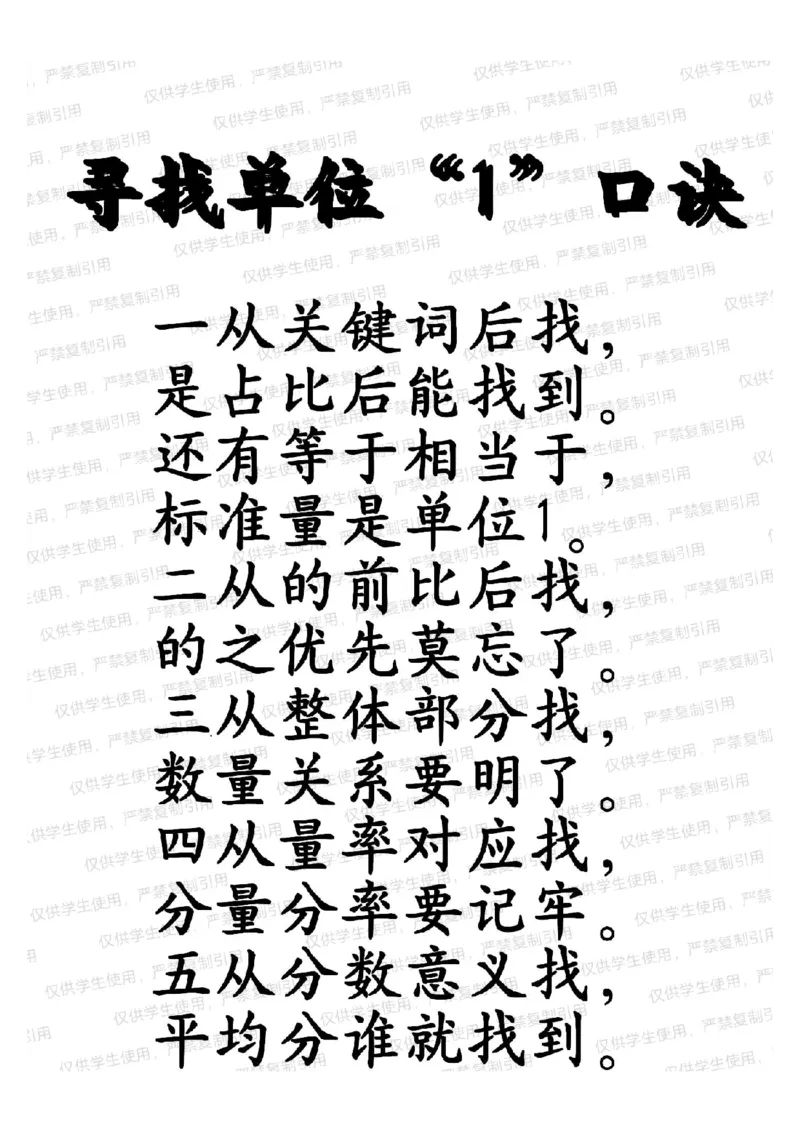 寻找单位“1”口诀
一从关键词后找，
是占比后能找到。
还有等于相当于，
标准量是单位1。
二从的前比后找，
的之优先莫忘了。
三从整体部分找，
数量关系要明了。
四从量率对应找，
分量分率要记牢。
五从分数意义找，
平均分谁就找到。
仅供学生使用，严禁复制引用